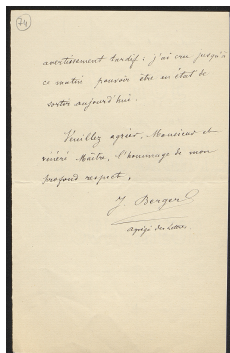 74
avertissement tardif : j'ai cru jusqu'à
ce matin pouvoir être en état de
sortir aujourd'hui.
Veuillez agréer, Monsieur et
vénéré Maître, l'hommage de mon
profond respect.
J. Berger
agrégé des lettres